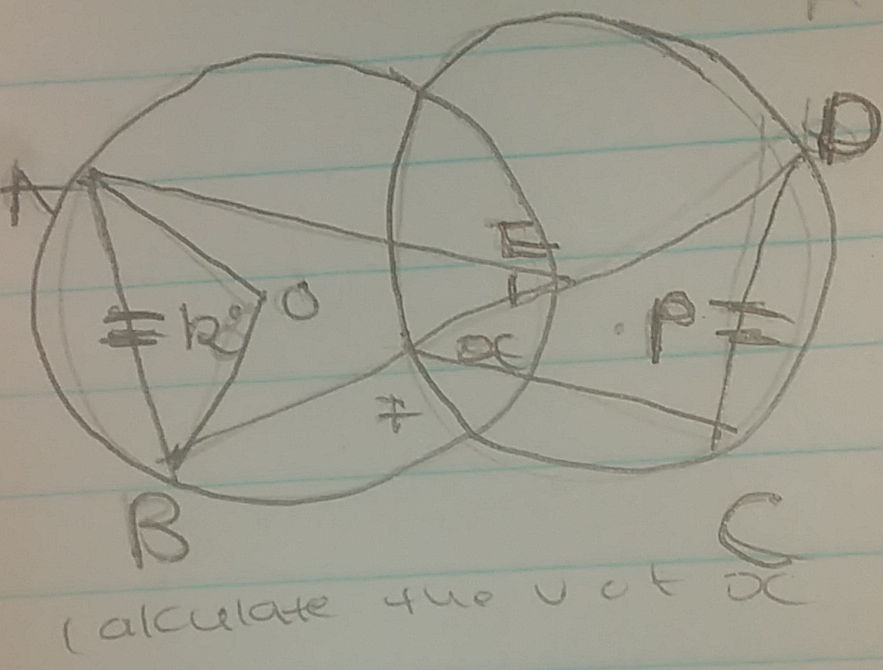 A
D
E
O
x
P
B
C
Calculate the v o t x